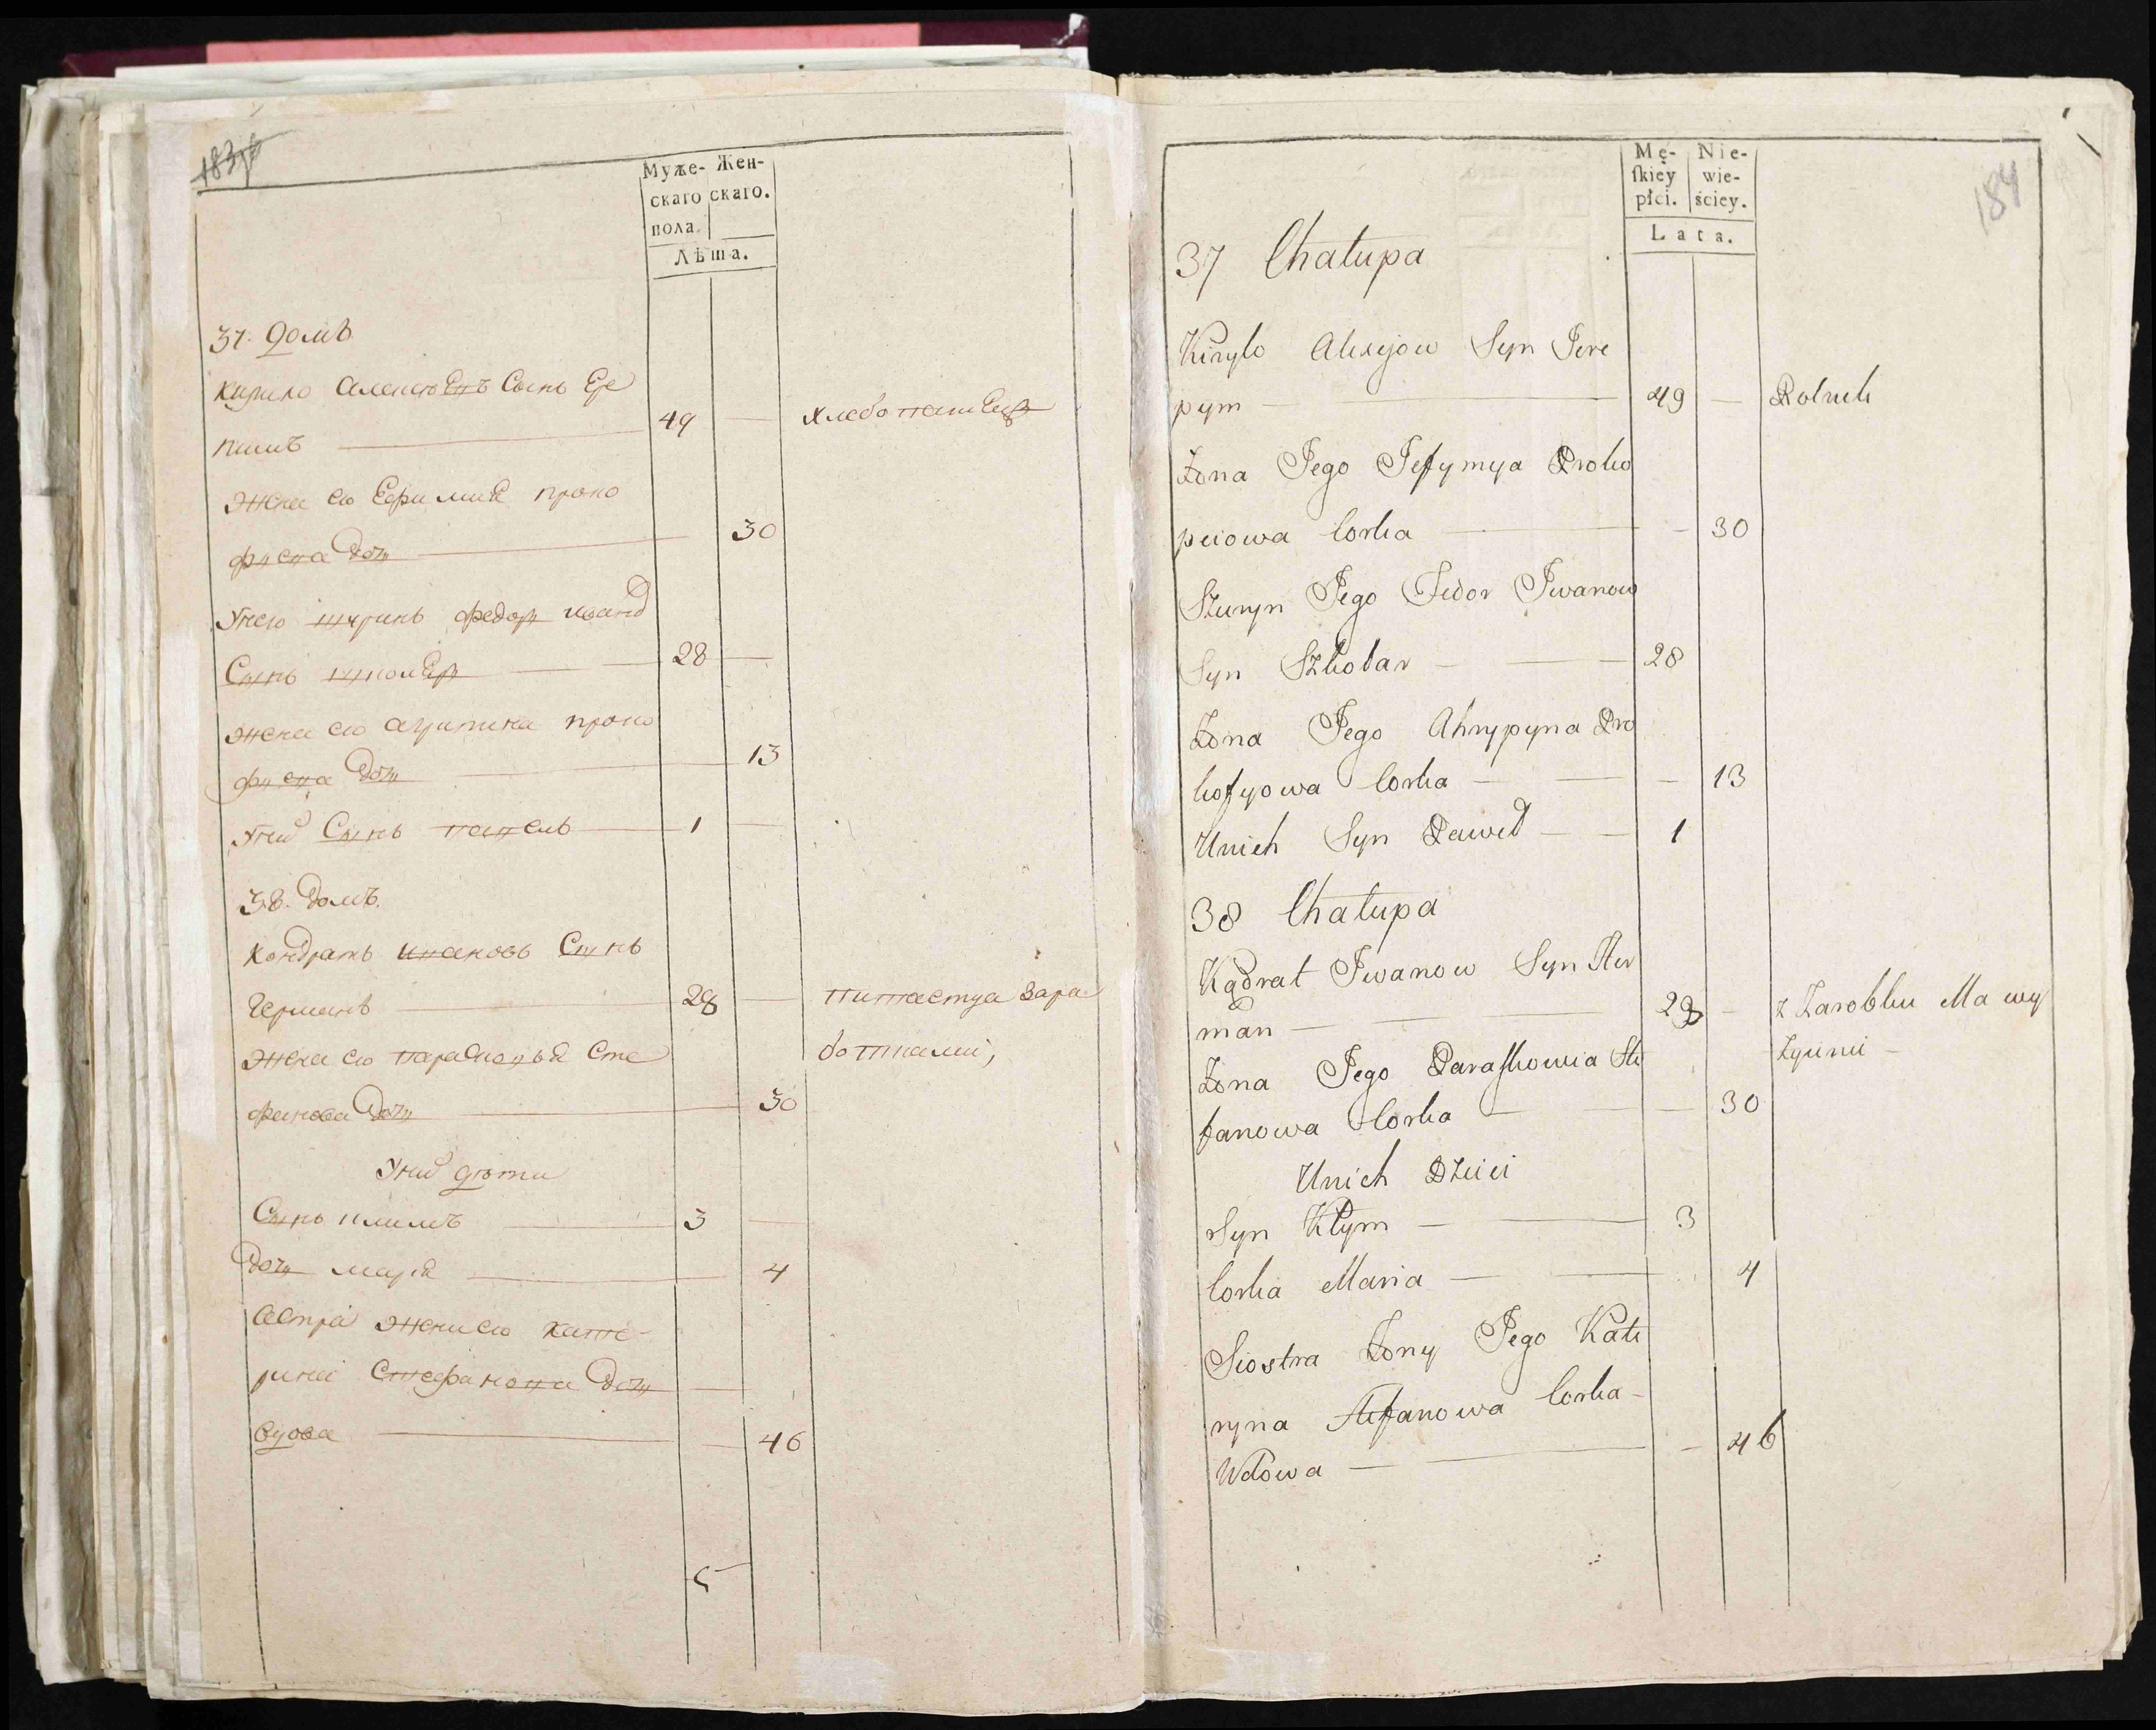 183
Муже- Жен-
скаго скаго.
пола.
Лѣта.
37. Домъ
Кирило Алексѣевъ Сынъ Ере
пимъ
49
хлебопашецъ
жена ево Ефимия проко
фиева дочъ
30
У него шуринъ Федор Иванов
Сынъ
28
жена ево Агрипина проко
фиева дочъ
13
У них Сынъ
1
38. Домъ.
Кондратъ Ивановъ Сынъ
Германъ
28
питается зара
жена ево парасковья Сте
ботками,
фанова дочъ
30
У них дѣти
Сынъ климъ
3
дочъ марiя
4
Сестра жены ево кате-
рина Стефанова дочъ
вдова
46
5
184
Mę- Nie-
skiey wie-
płci. ściey.
Lata.
37 Chałupa
Kiryło Alexijow Syn Jere
pym 49 Rolnik
Żona Jego Jefymya Proko
piiowa Corka 30
Szuryn Jego Fedor Iwanow
Syn Szkolar 28
Żona Jego Ahrypyna Pro
kofyowa Corka 13
Unich Syn Pawel 1
38 Chałupa
Kądrat Iwanow Syn Her
man 28 z Zarobku Ma wy
Żona Jego Paraskowia Ste
żywi
fanowa Corka 30
Unich Dzieci
Syn Kłym 3
Corka Maria 4
Siostra Żony Jego Kate
ryna Stefanowa Corka
Wdowa 46